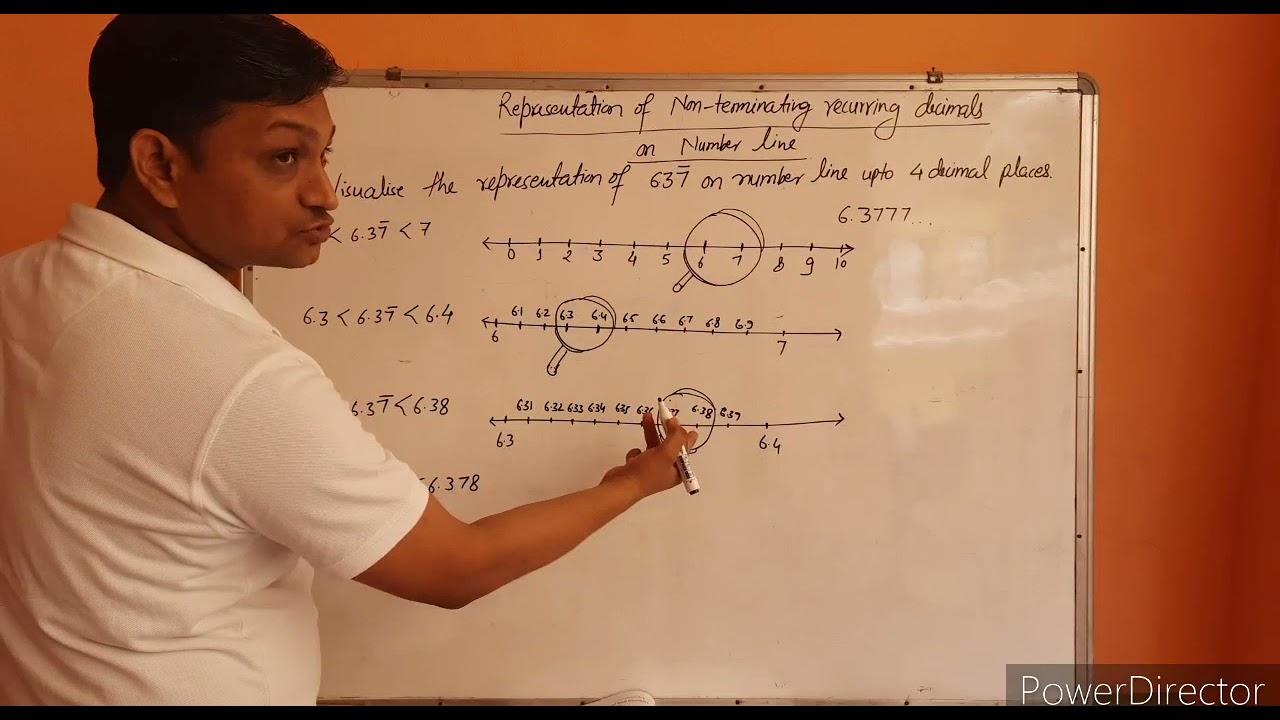 Representation of Non-terminating recurring decimals
on Number line
Visualise the representation of 6.37̄ on number line upto 4 decimal places.
6.3777...
< 6.37̄ < 7
0 1 2 3 4 5 6 7 8 9 10
6.3 < 6.37̄ < 6.4
6.1 6.2 6.3 6.4 6.5 6.6 6.7 6.8 6.9
6 7
6.37̄ < 6.38
6.31 6.32 6.33 6.34 6.35 6.36 6.38 6.39
6.3 6.4
6.378
PowerDirector